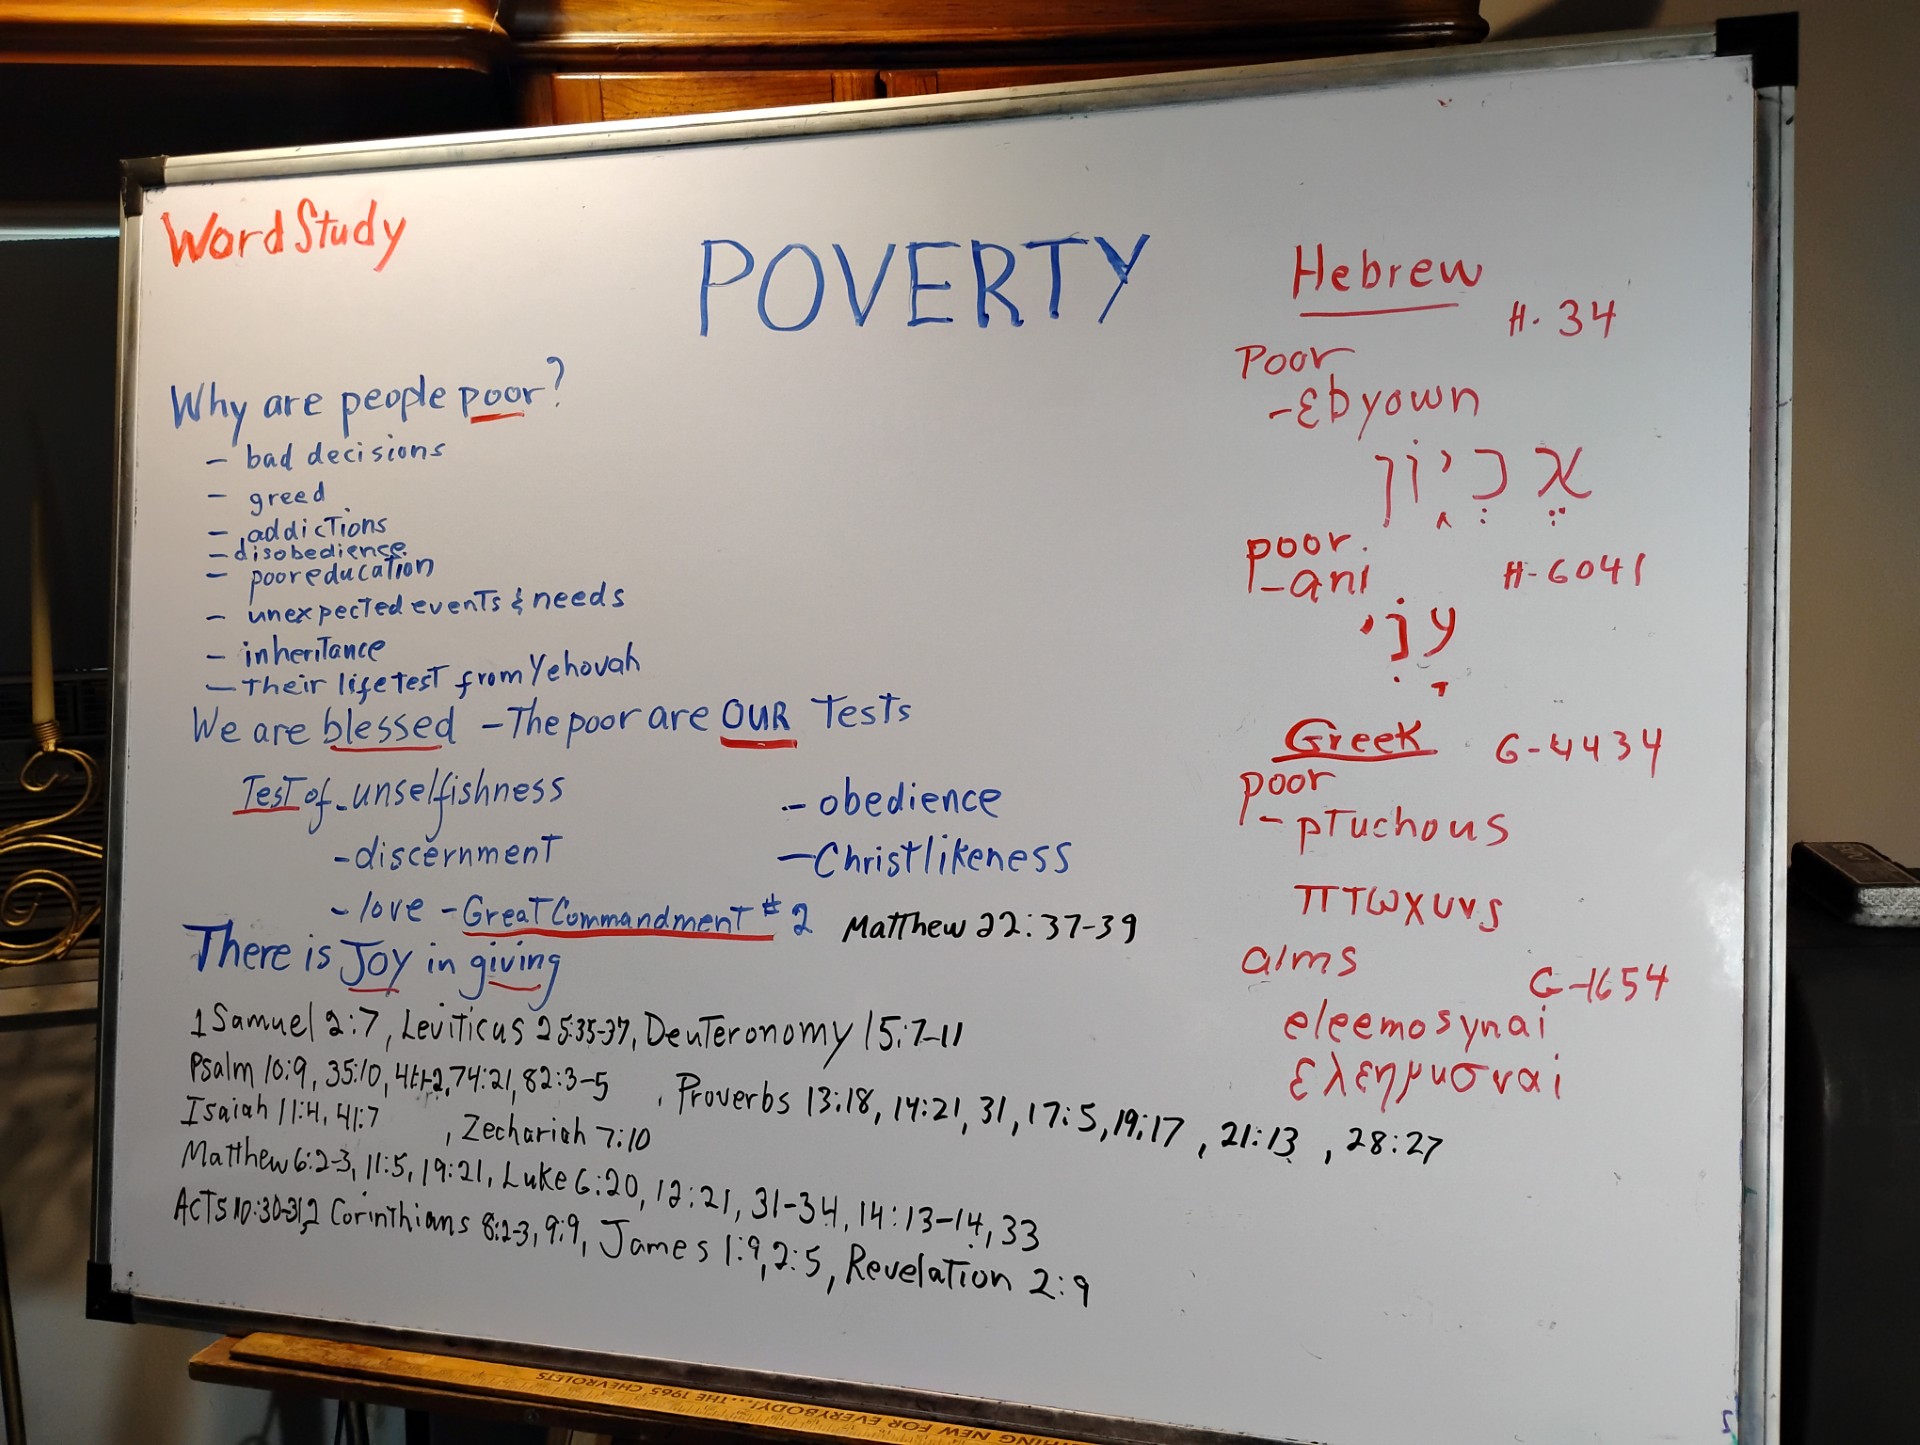 Word Study
POVERTY
Why are people poor?
- bad decisions
- greed
- addictions
- disobedience
- poor education
- unexpected events & needs
- inheritance
- Their life test from Yehovah
We are blessed - The poor are OUR Tests
Test of - unselfishness
- obedience
- discernment
- Christlikeness
- love - Great Commandment #2 Matthew 22:37-39
There is Joy in giving
1 Samuel 2:7, Leviticus 25:35-37, Deuteronomy 15:7-11
Psalm 10:9, 35:10, 41:1-2, 74:21, 82:3-5, Proverbs 13:18, 14:21, 31, 17:5, 19:17, 21:13, 28:27
Isaiah 11:4, 41:7, Zechariah 7:10
Matthew 6:2-3, 11:5, 19:21, Luke 6:20, 12:21, 31-34, 14:13-14, 33
Acts 10:30-31, 2 Corinthians 8:2-3, 9:9, James 1:9, 2:5, Revelation 2:9
Hebrew
H-34
Poor
- Ebyown
אֶכְיָוֹן
poor
- ani
H-6041
עָנִי
Greek G-4434
poor
- ptuchous
πτωχυνς
alms
G-1654
eleemosynai
ελεημυσναι
THING NEW FOR EVERYBODY!...THE 1965 CHEVROLETS